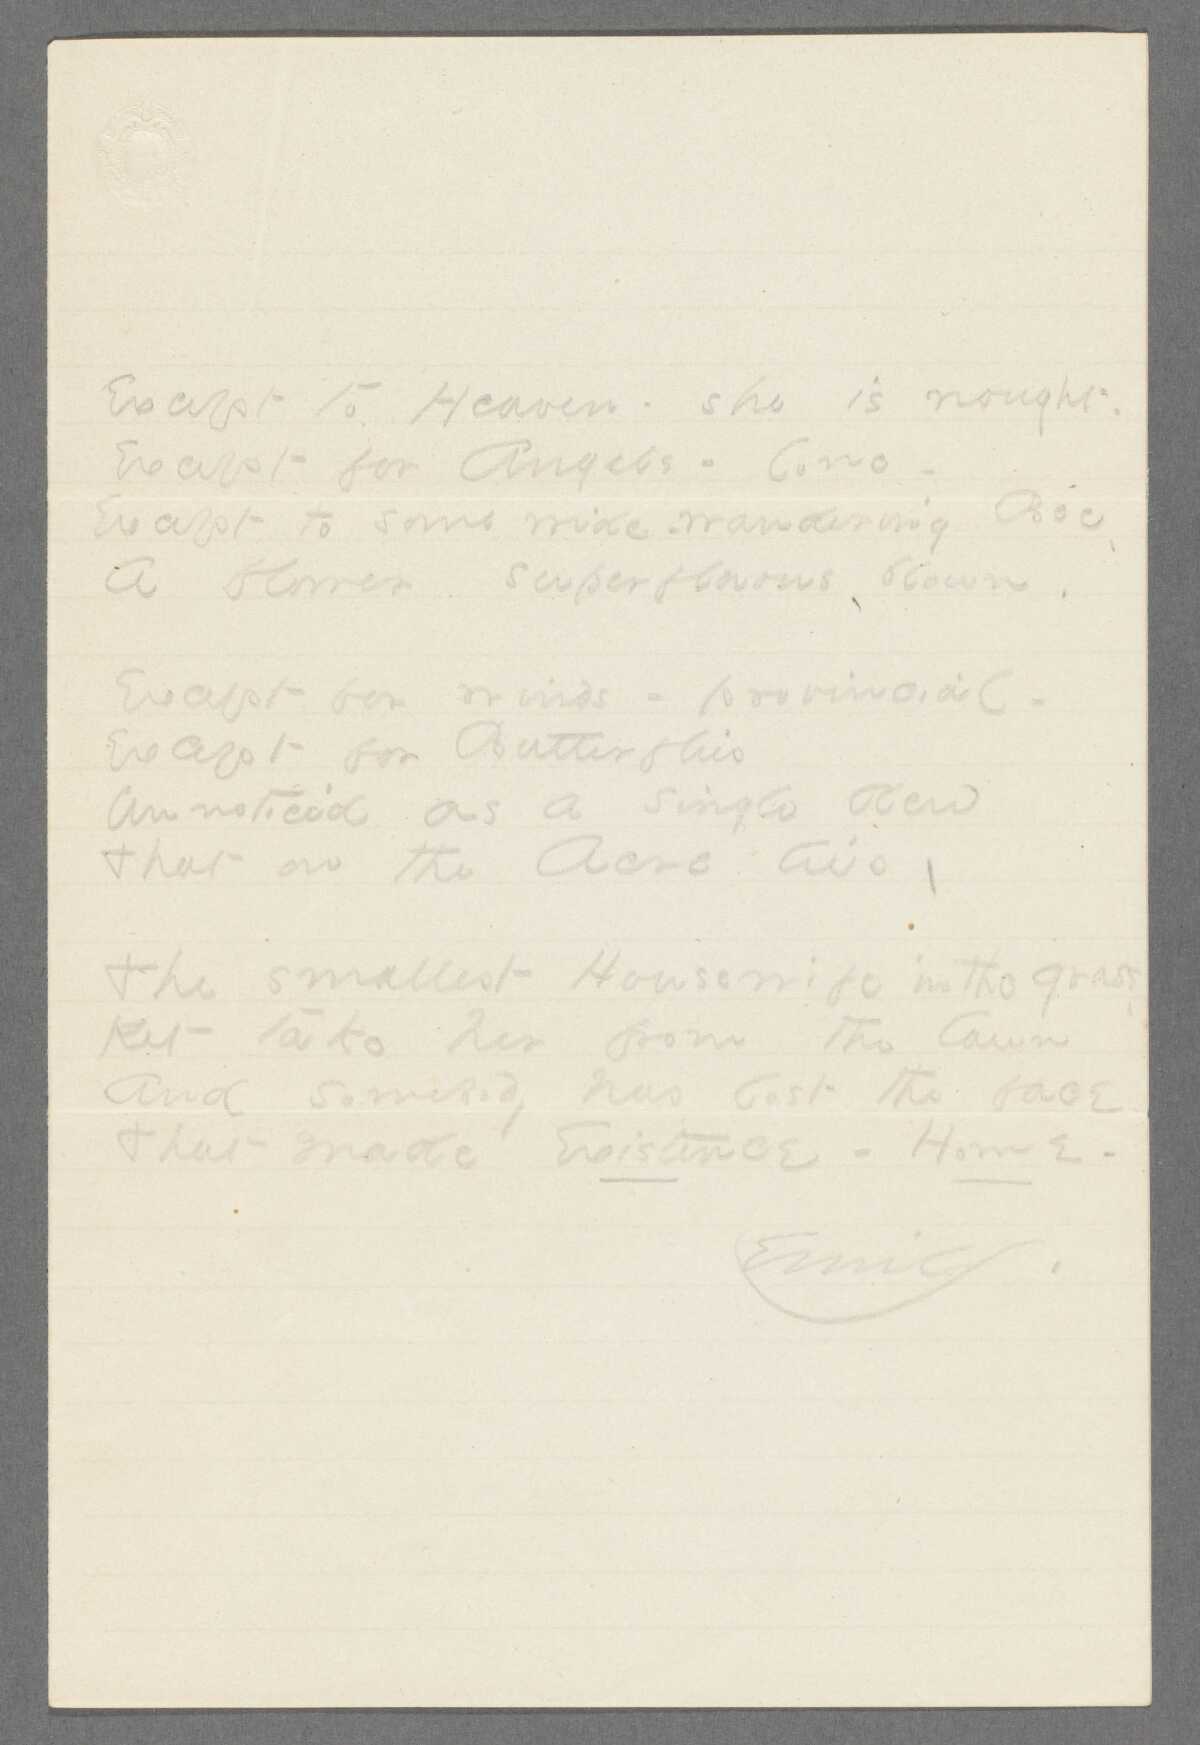 Except to Heaven - she is nought.
Except for Angels - lone -
Except to some wide-wandering Bee,
A flower superfluous blown.
Except for winds - provincial -
Except for Butterflies
Unnoticed as a single dew
That on the Acre lies,
The smallest Housewife in the grass,
Yet take her from the lawn
And somebody has lost the face
That made Existence - Home -
Emily.